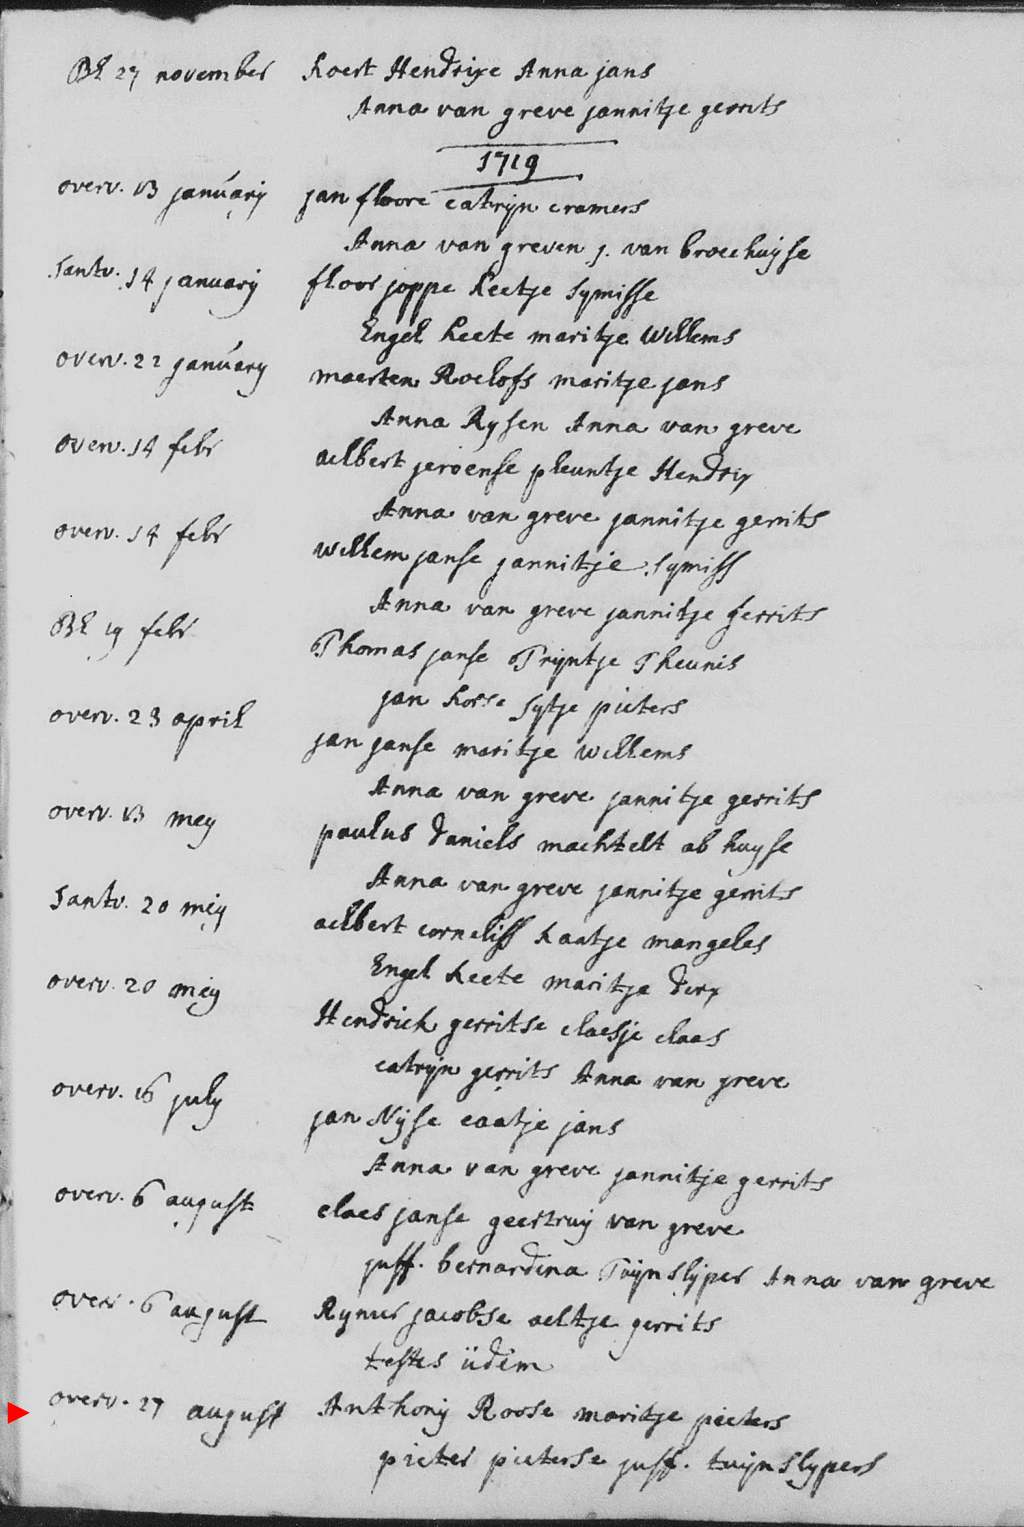 Bl 27 november koert Hendrixe Anna jans
Anna van greve jannitje gerrits
1719
overv. 13 january jan floore catrijn cramers
Anna van greven j. van broeckhuyse
santv. 14 january floor joppe keetje symisse
Engel keete maritje willems
overv. 22 january maerten Roelofs maritje jans
Anna Rysen Anna van greve
overv. 14 febr aelbert jeroense pleuntje Hendrix
Anna van greve jannitje gerrits
overv. 14 febr willem janse jannitje symiss
Anna van greve jannitje gerrits
Bl 19 febr Thomas janse Trijntje Theunis
jan sytje pieters
overv. 23 april jan janse maritje willems
Anna van greve jannitje gerrits
overv. 13 mey paulus daniels machtelt ab huyse
Anna van greve jannitje gerrits
santv. 20 mey aelbert corneliss kaatje mangeles
Engel keete maritje dirx
overv. 20 mey Hendrick gerritse claesje claas
catrijn gerrits Anna van greve
overv. 16 july jan Nyse caatje jans
Anna van greve jannitje gerrits
overv. 6 august claes janse geertruy van greve
juff. bernardina Tuijnslyper Anna van greve
overv. 6 august Rynier jacobse aeltje gerrits
testes iidem
overv. 27 august Anthonij Roose maritje pieters
pieter pieterse juff. tuijnslypers